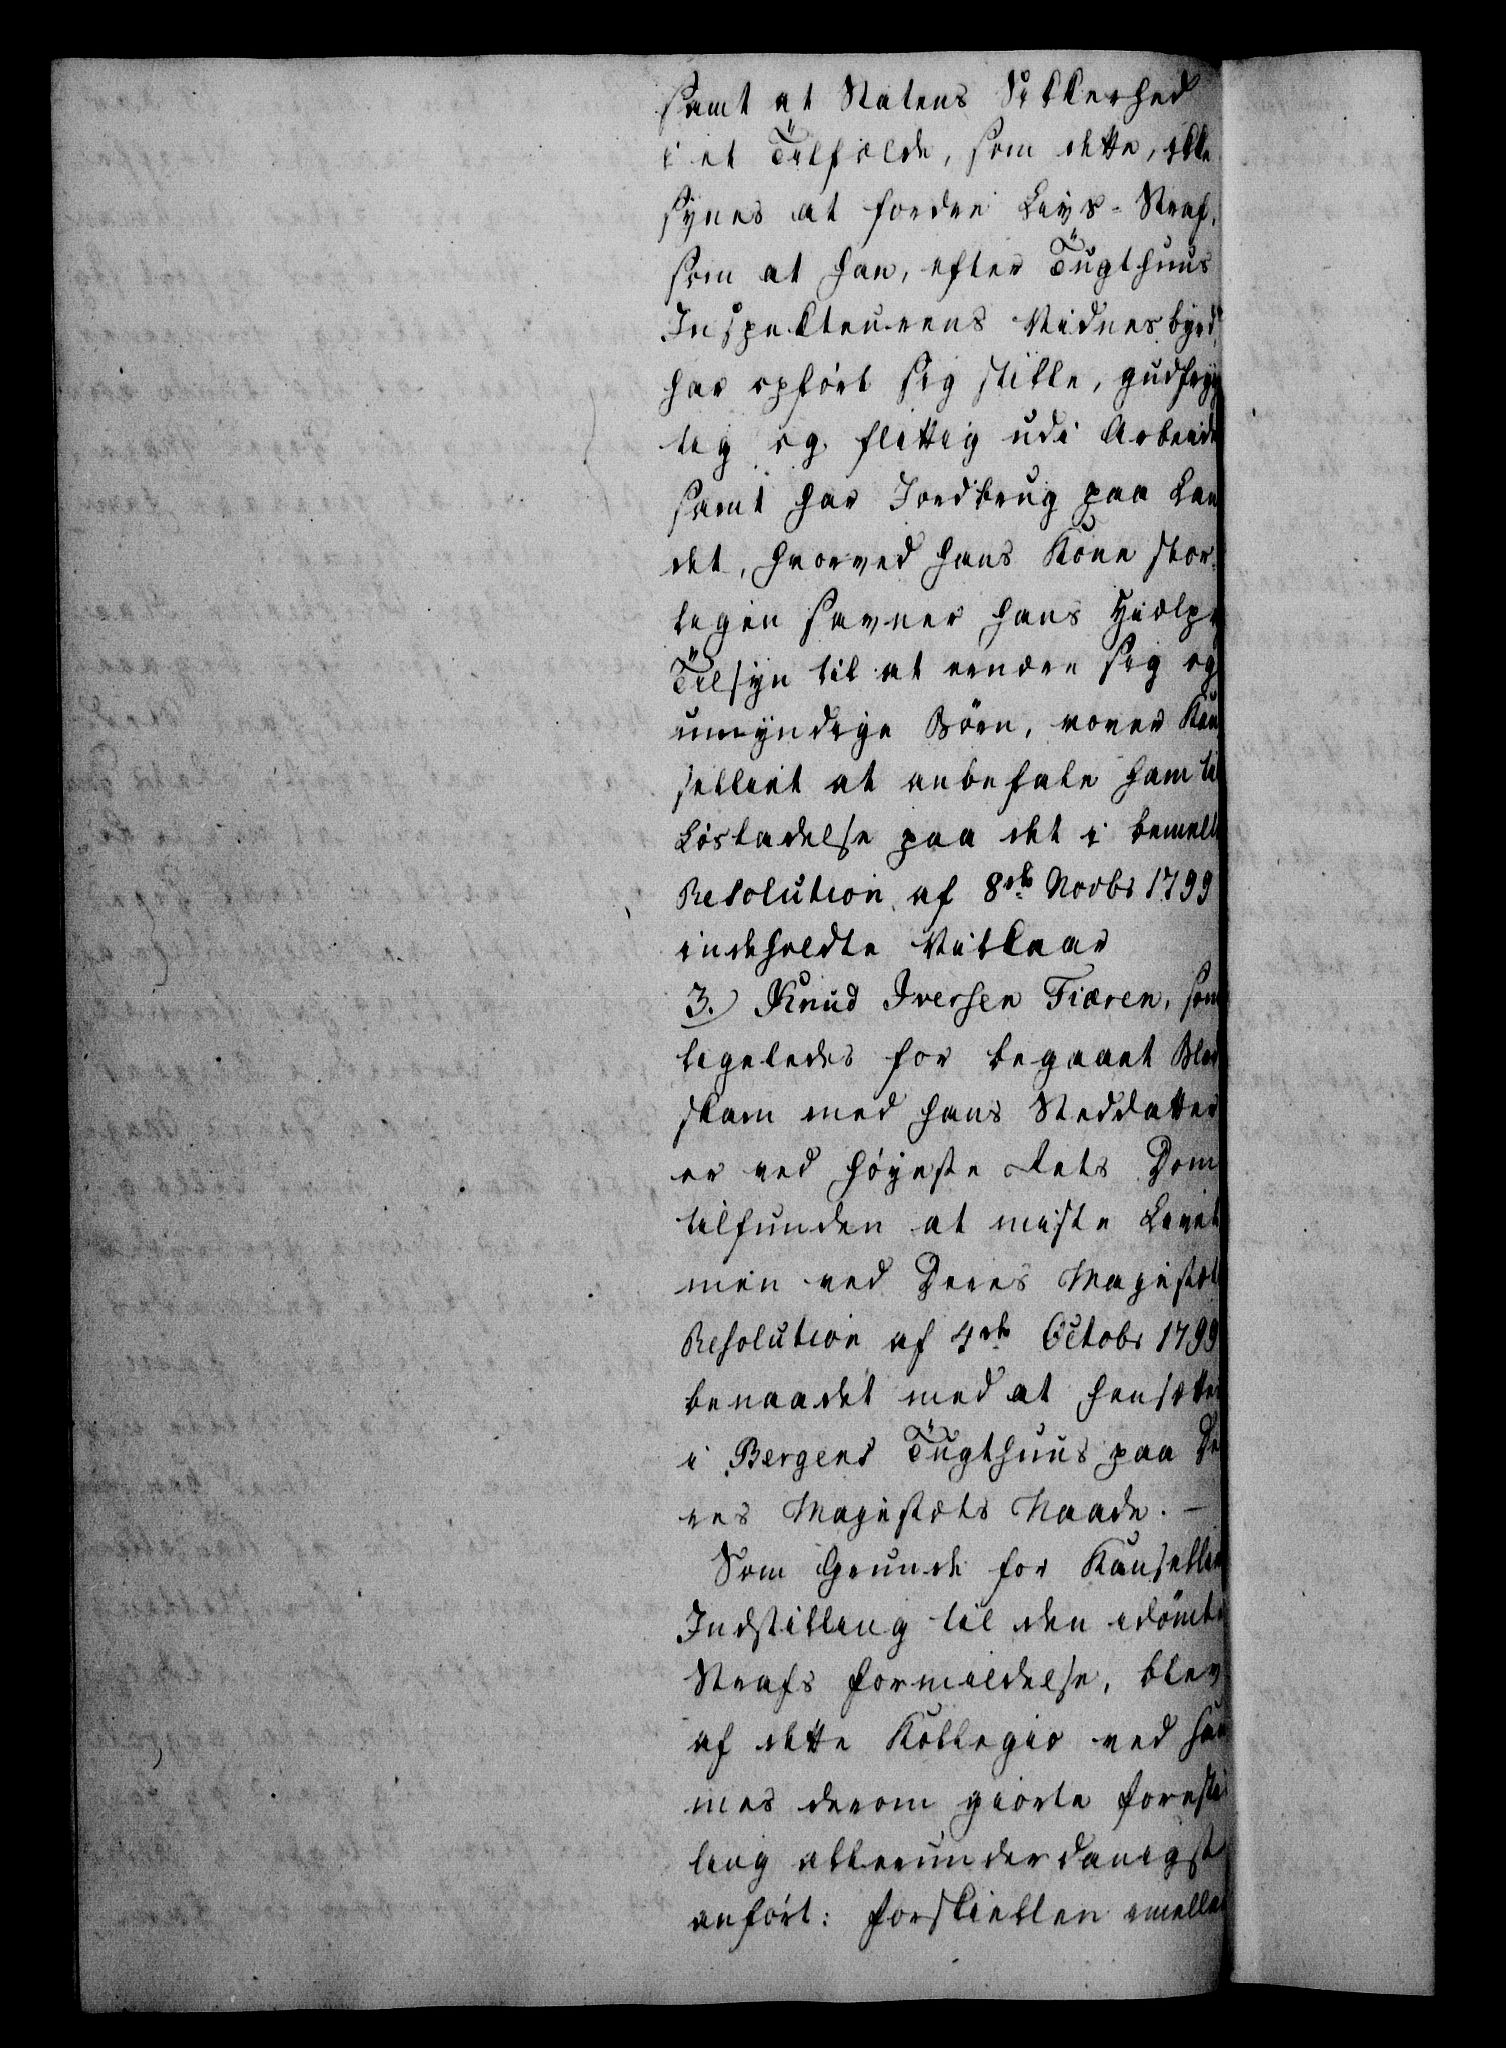 samt at Statens Sikkerhed
i et Tilfælde, som dette, ikke
synes at fordre Livs-Straf,
som at han, efter Tugthuus
Inspekteurens Vidnesbyrd,
har opført sig stille, gudfryg
tig og flittig udi Arbeide
samt har Jordbrug paa Lan
det, hvorved hans Kone stor¬
ligen savner hans Hielp
Tilsyn til at ernære sig og
umyndige Børn, vover Kan
selliet at anbefale ham til
Løsladelse paa det i bemelte
Resolution af 8de Novbr 1799
indeholdte Vilkaar
3. Knud Iversen Fiæren, som
ligeledes for begaaet Blod
skam med hans Steddatter
er ved Høyeste Rets Dom
tilfunden at miste Livet
men ved Deres Majestæts
Resolution af 4de Octobr 1799
benaadet med at hensættes
i Bergens Tugthuus paa De
res Majestæts Naade. —
Som Grunde for Kanselliets
Indstilling til den idømte
Strafs Formildelse, blev
af dette Kollegio ved sam
mes derom giorte Forestil
ling allerunderdanigst
anført: Forskiellen imellem